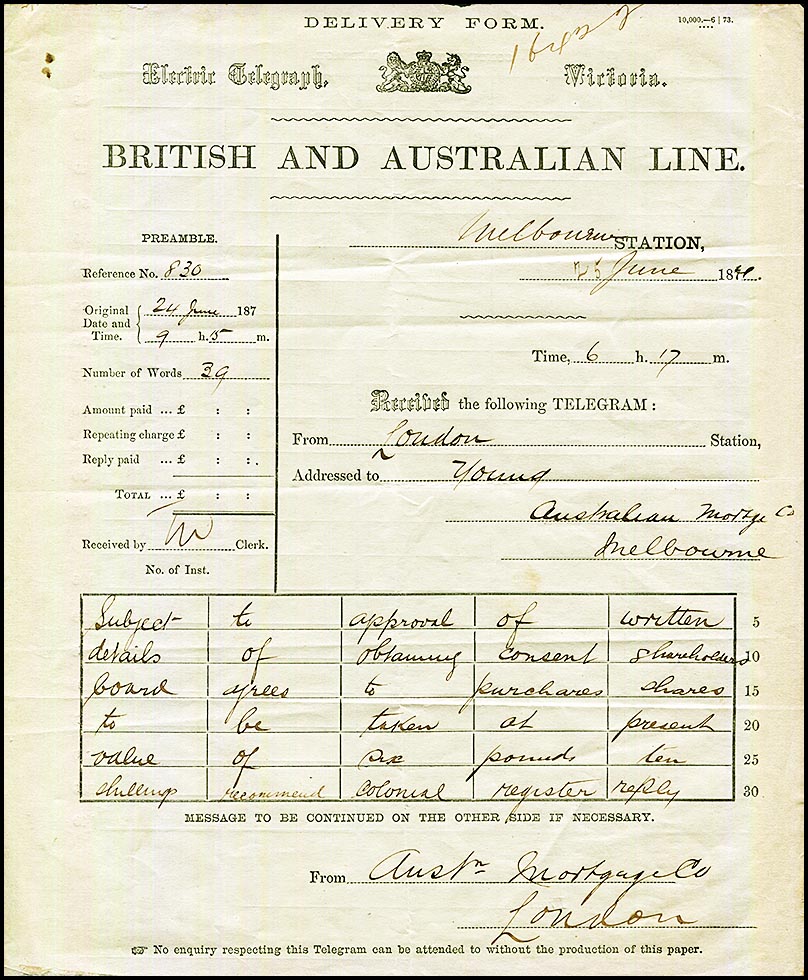 DELIVERY FORM.
10,000.—6 | 73.
Electric Telegraph, Victoria.
BRITISH AND AUSTRALIAN LINE.
PREAMBLE.
Reference No. 830
Original Date and Time. 24 June 187
9 h. 15 m.
Number of Words 39
Amount paid ... £ : :
Repeating charge £ : :
Reply paid ... £ : : .
TOTAL ... £ : :
Received by Clerk.
No. of Inst.
Melbourne STATION,
25 June 187
Time, 6 h. 17 m.
Received the following TELEGRAM :
From London Station,
Addressed to Young
Australian Mortge Co
Melbourne
Subject to approval of written 5
details of obtaining consent shareholders 10
board agrees to purchares shares 15
to be taken at present 20
value of six pounds ten 25
shillings recommend colonial register reply 30
MESSAGE TO BE CONTINUED ON THE OTHER SIDE IF NECESSARY.
From Austn Mortgage Co
London
☞ No enquiry respecting this Telegram can be attended to without the production of this paper.